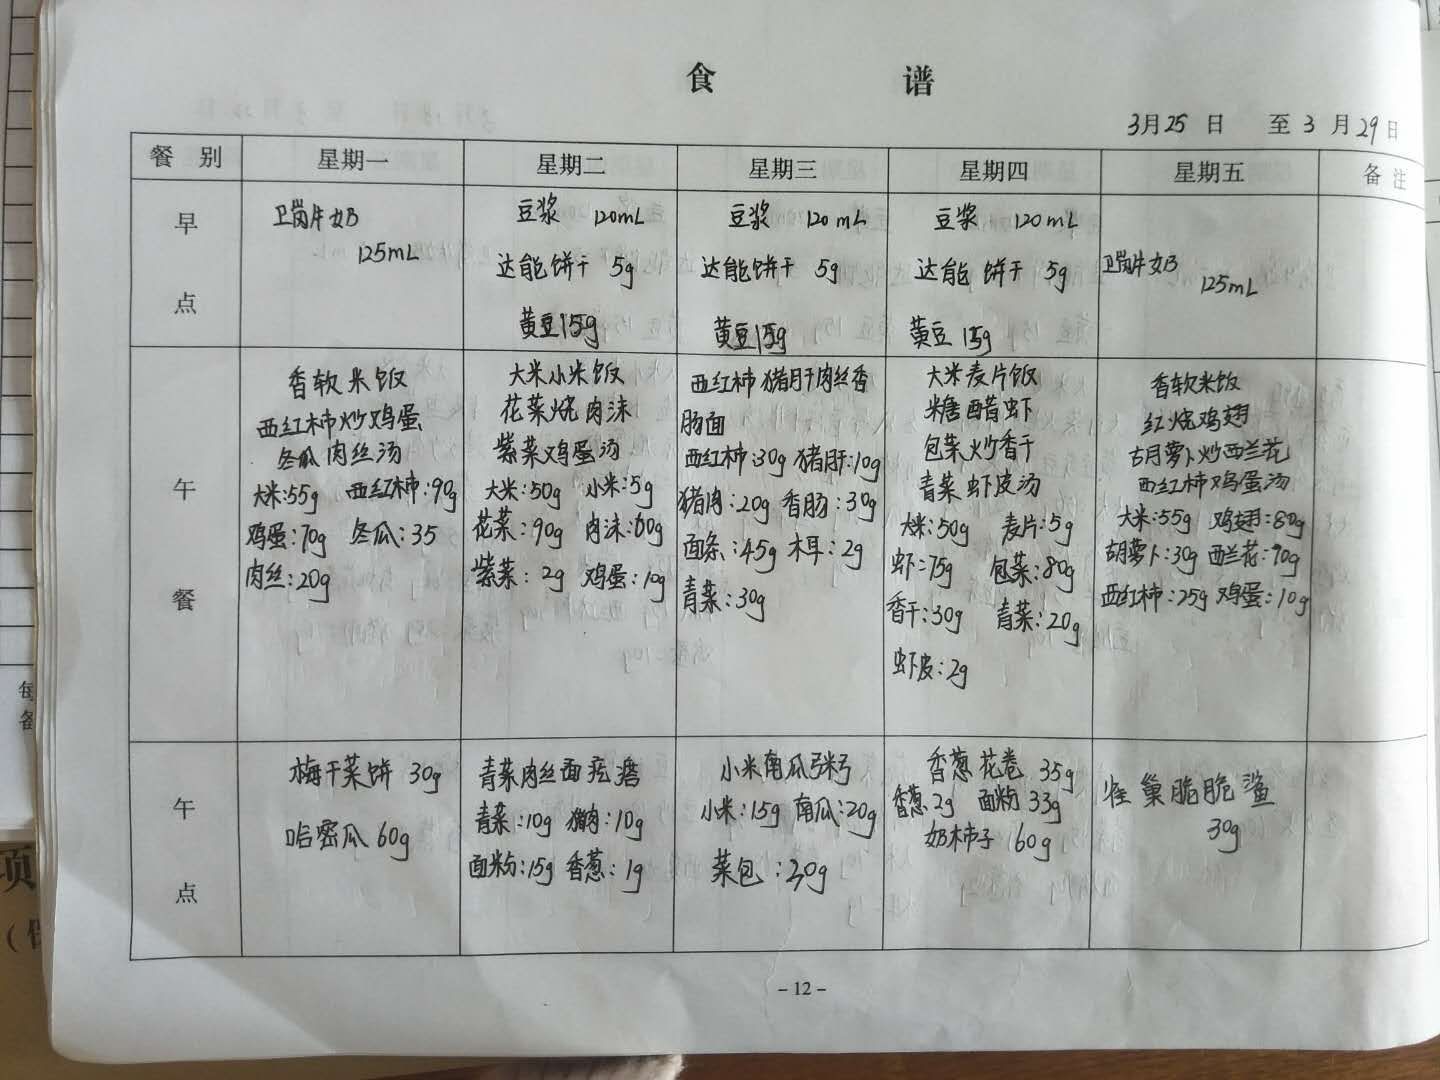 食 谱
3月25日 至3月29日
餐 别 星期一 星期二 星期三 星期四 星期五 备注
早点
卫岗牛奶
125mL
豆浆 120mL
达能饼干 5g
黄豆15g
豆浆 120mL
达能饼干 5g
黄豆15g
豆浆 120mL
达能饼干 5g
黄豆15g
卫岗牛奶
125mL
午餐
香软米饭
西红柿炒鸡蛋
冬瓜肉丝汤
大米:55g 西红柿:90g
鸡蛋:70g 冬瓜:35
肉丝:20g
大米小米饭
花菜烧肉沫
紫菜鸡蛋汤
大米:50g 小米:5g
花菜:90g 肉沫:60g
紫菜:2g 鸡蛋:10g
西红柿猪肝肉丝香
肠面
西红柿:30g 猪肝:10g
猪肉:20g 香肠:30g
面条:45g 木耳:2g
青菜:30g
大米麦片饭
糖醋虾
包菜炒香干
青菜虾皮汤
大米:50g 麦片:5g
虾:75g 包菜:80g
香干:30g 青菜:20g
虾皮:2g
香软米饭
红烧鸡翅
胡萝卜炒西兰花
西红柿鸡蛋汤
大米:55g 鸡翅:80g
胡萝卜:30g 西兰花:90g
西红柿:25g 鸡蛋:10g
午点
梅干菜饼 30g
哈密瓜 60g
青菜肉丝面疙瘩
青菜:10g 猪肉:10g
面粉:15g 香葱:1g
小米南瓜粥
小米:15g 南瓜:20g
菜包:30g
香葱花卷 35g
香葱2g 面粉33g
奶柿子 60g
雀巢脆脆鲨
30g
-12-